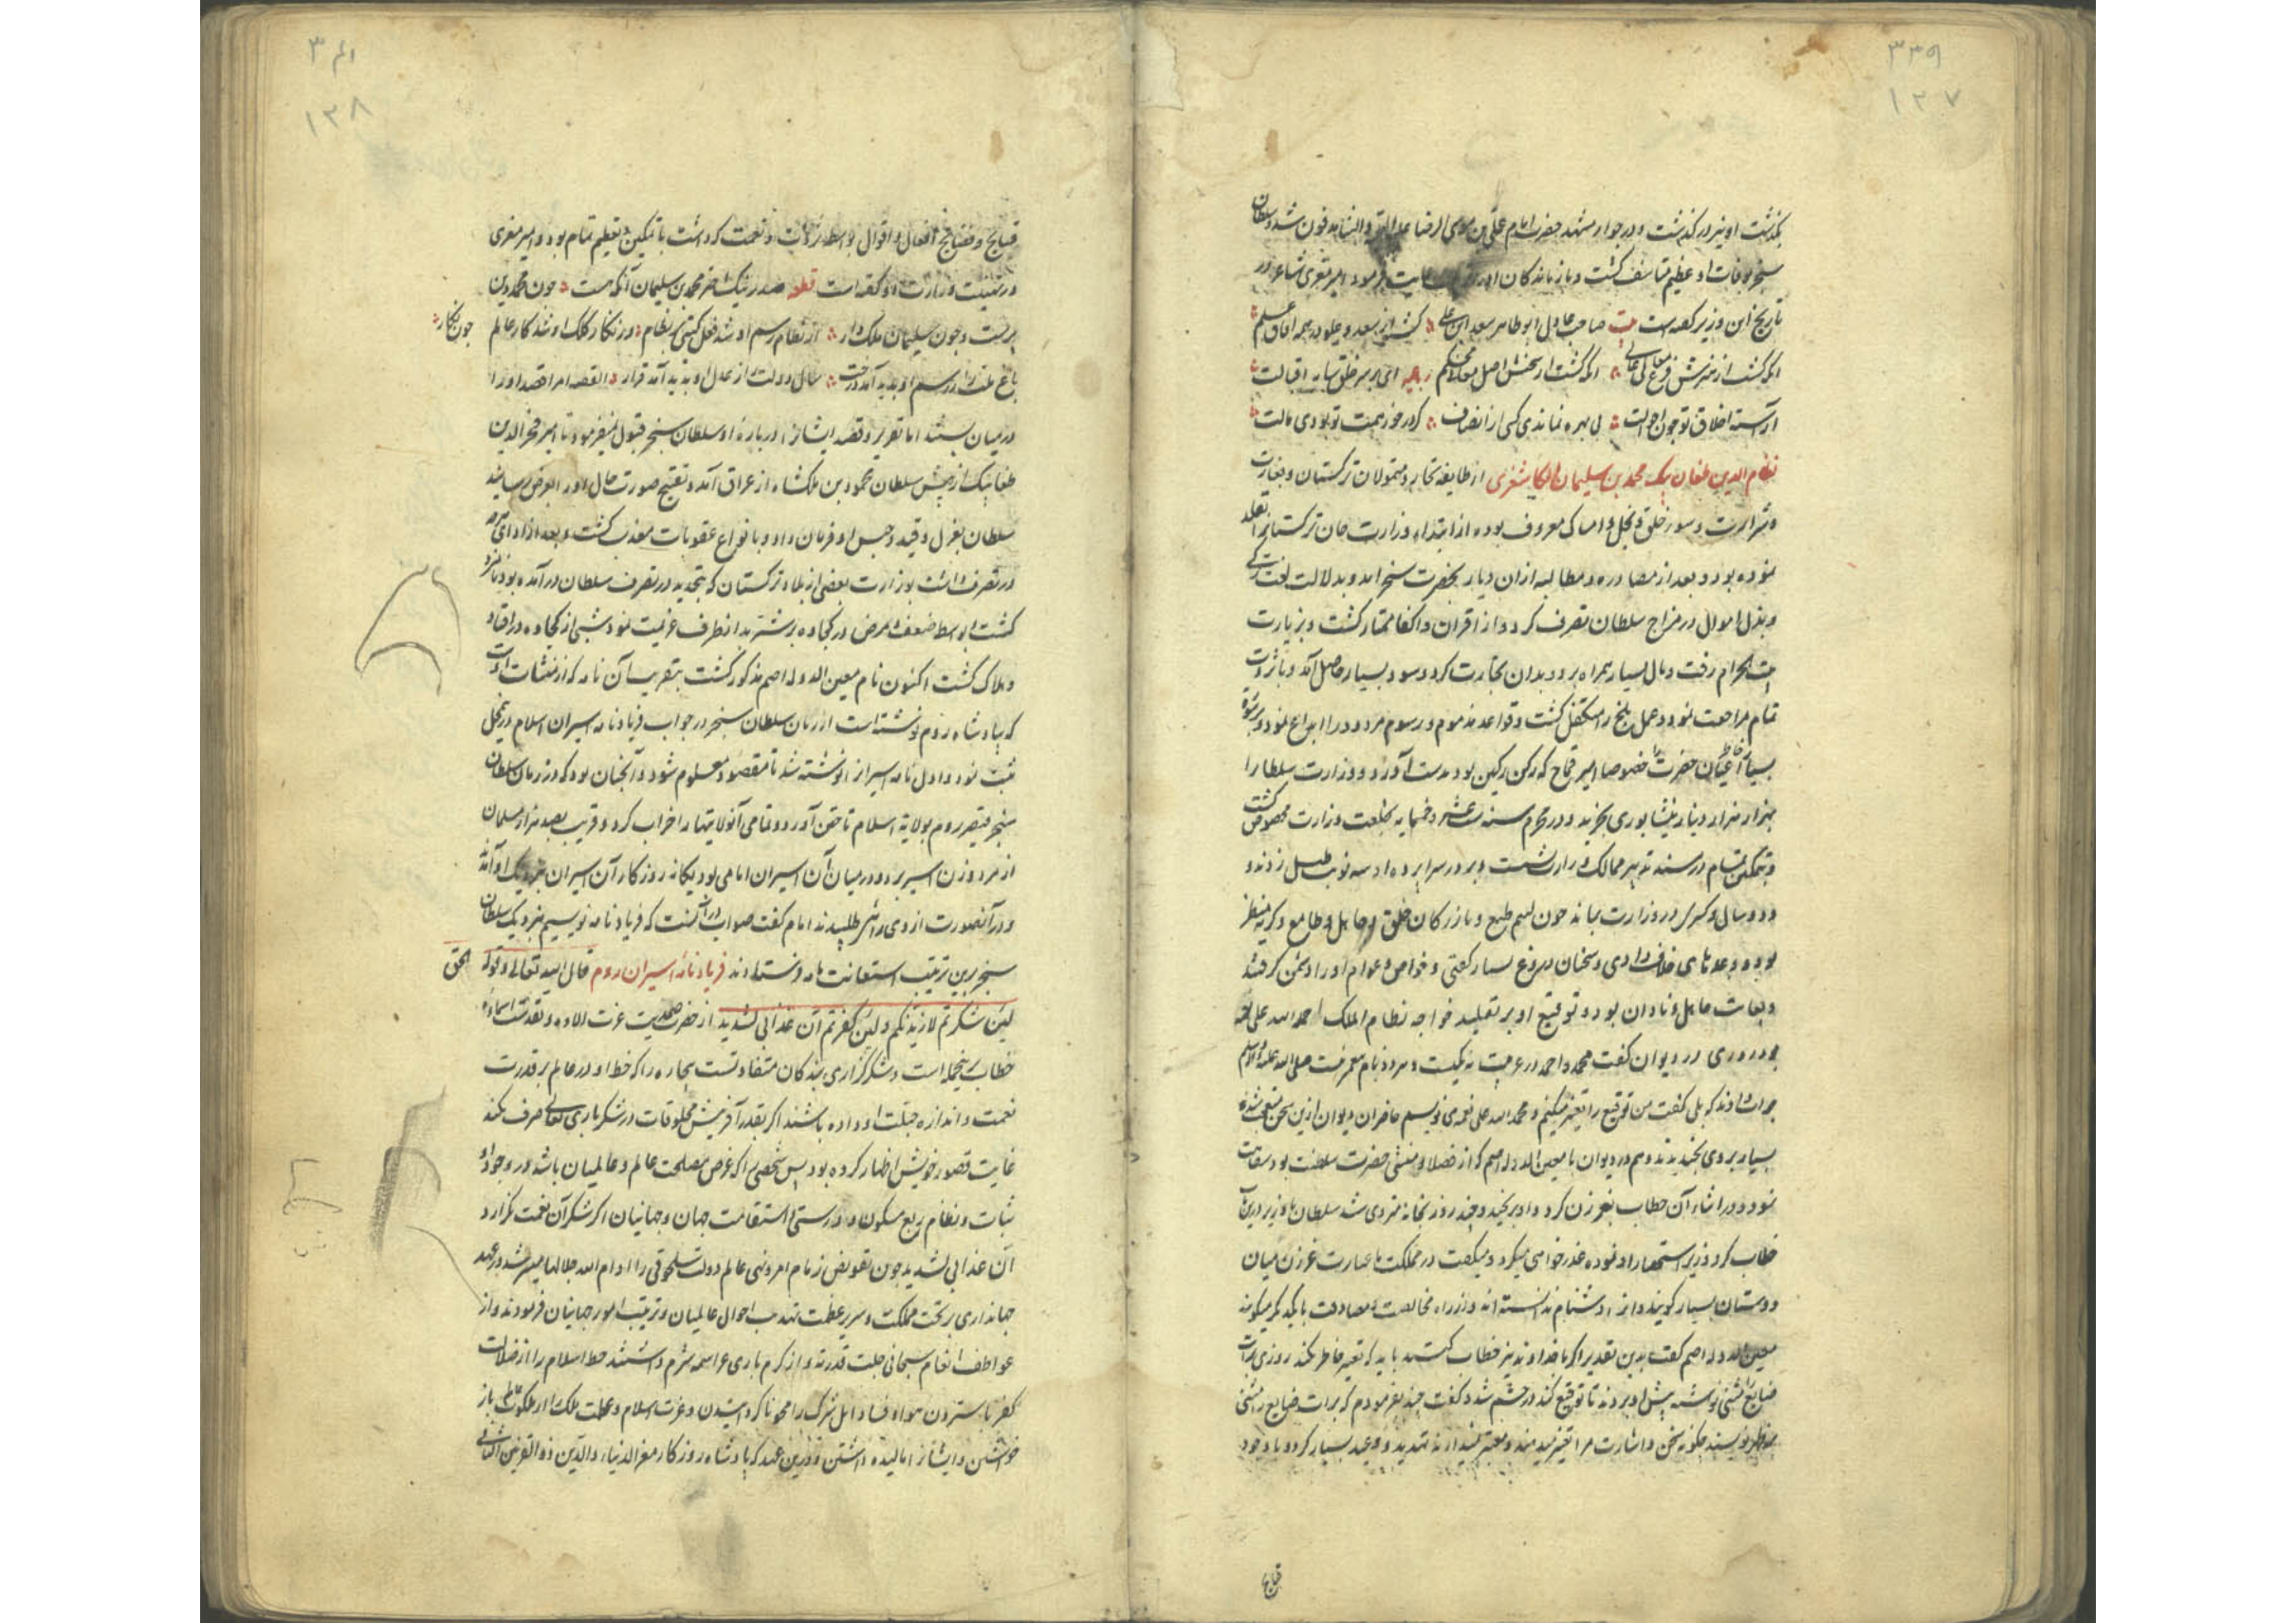 ۳۳۹
۱۲۷
بگذشت او نیز درگذشت و در جوار مشهد حضرت امام علی بن موسی الرضا علیه التحیة والثنا مدفون شد و سلطان
سنجر بوفات او عظیم متاسف گشت و بازماندکان او را رعایت فرمود امیر معزی شاعر در
تاریخ این وزیر کفته است بیت صاحب عادل ابوطاهر سعد ابن علی
انکه کشت از هنرش فرع معالی عالی انکه کشت از سخنش اصل معالم محکم رباعیه ای بر سر خلق سایه اقبالت
آراسته اخلاق تو جون احوالت بی بهره نماندی کس از انصاف کر در خور همت تو بودی مالت
نظام الدین طغان بیک محمد بن سلیمان الکاشغری از طایفه تجار و متمولان ترکستان و بغایت
و شرارت و سوء خلق و بخل و امساک معروف بوده از ابتداء وزارت خان ترکستانرا تقلد
نموده بود و بعد از مصادره و مطالبه از ان دیار بحضرت سنجر امد و بدلالت لغت ترکی
و بذل اموال در مزاج سلطان تصرف کرد و از اقران و اکفا ممتاز کشت و بزیارت
بیت الحرام رفت و مال بسیار همراه برد و بدان تجارت کرد و سود بسیار حاصل آمد و با ثروت
تمام مراجعت نمود و عمل بلخ را متکفل کشت و قواعد مذموم و رسوم مردود را ابداع نمود و برشوة
بسیار خاطر اعیان حضرت را خصوصا امیر قماج که رکن رکین بود بدست آورد و وزارت سلطانرا
بهزار هزار دینار نیشابوری بخرید و در محرم سنه ست عشر و خمسمایه بخلعت وزارت مخصوص کشت
و بتمکین تمام در مسند تدبیر ممالک وزارت نشست و بر در سرابرده او سه نوبت طبل زدند و
و دو سال و کسری در وزارت بماند جون لئیم طبع و بازرکان خلق و جاهل و طامع و کریه منظر
بوده وعدهای خلاف دادی و سخنان دروغ بسیار کفتی و خواص و عوام او را دشمن کرفتند
و بغایت جاهل و نادان بود و توقیع او بر تقلید خواجه نظام الملک احمد الله علی نعمه
بود روزی در دیوان کفت محمد و احمد در عربیت نه یکیست و هر دو نام پیغمبرست صلی الله علیه والسلام
جواب دادند که بلی کفت من توقیع را تغییر میکنم و محمد الله علی نعمه می نویسم حاضران دیوان ازین سخن متعجب شدند
بسیار بروی بخندیدند و هم در دیوان با معین الدوله اصم که از فضلا و منشی حضرت سلطنت بود سفاهت
نمود و در اثناء آن خطاب بغرزن کرد و او برنجید و چند روز بخانه منزوی شد سلطان با وزیر درین باب
خطاب کرد وزیر استحضار او نموده عذرخواهی میکرد و میکفت در مملکت ما عبارت غرزن میان
دوستان بسیار کویند و انرا دشنام ندانسته اند و از راه مخالصت و مصادقت با یکدیکر میکویند
معین الدوله اصم کفت بدین تقدیر اکر ما خداوند را نیز خطاب کنیم باید که تغییر خاطر نکند روزی برات
ضایع منشی نوشته پیش او بردند تا توقیع کند در خشم شد و کفت چند بفرمودم که برات ضایع را منشی
نویسد جکونه سخن و اشارت مرا تغییر میدهند و معتبر نمیدارند تهدید و وعید بسیار کرد و با وجود
قبایح
۳۴۱
۱۲۸
قبایح و فضایح افعال و اقوال بواسطه ثروت و نعمت که داشت با تمکین و تعظیم تمام بود و امیر معزی
در تهنیت وزارت او کفته است قطعه صدر نیک اختر محمد بن سلیمان آنکه هست جون محمد دین
برست و جون سلیمان ملک دار از نظام رسم او شد فعل کیتی بر نظام وز نکار کلک او شد کار عالم جون نکار
باغ ملت را ز رسم او پدید آمد درخت سال دولت را ز عدل او پدید آمد قرار القصه امرا قصد او را
در میان بستند اما تقریر و قصه ایشان را در باره او سلطان سنجر قبول نمیفرمود تا امیر فخر الدین
طغایبک از پیش سلطان محمود بن ملکشاه از عراق آمد و تقبیح صورت حال او را بعرض رسانید
سلطان بعزل و قید و حبس او فرمان داد و بانواع عقوبات معذب کشت و بعد از ادای هرجه
در تصرف داشت بوزارت بعضی از بلاد ترکستان که بتجدید در تصرف سلطان در آمده بود نامزد
کشت بواسطه ضعف و مرض در کجاوه بر شتر بدانطرف عزیمت نمود شبی از کجاوه در افتاد
و هلاک کشت اکنون نام معین الدوله اصم مذکور کشت بتقریب آن نامه که از منشات اوست
که بپادشاه روم نوشته است از زبان سلطان سنجر در جواب فریادنامه اسیران اسلام درین محل
ثبت نمود و اول نامه اسیران نوشته شد تا مقصود معلوم شود و آنجنان بود که در زمان سلطان
سنجر قیصر روم بولایة اسلام تاختن آورد و تمامی آنولایتها را خراب کرد و قریب بصد هزار مسلمان
از مرد و زن اسیر برد و در میان آن اسیران امامی بود یکانه روزکار آن اسیران بنزدیک او آمدند
و در آنصورت از وی رای طلبیدند امام کفت صواب درانست که فریادنامه نویسیم بنزدیک سلطان
سنجر برین ترتیب استعانت نامه فرستادند فریادنامه اسیران روم قال الله تعالی و قوله الحق
لئن شکرتم لازیدنکم ولئن کفرتم ان عذابی لشدید از حضرت صمدیت عزت الاؤه و تقدست اسماؤه
خطاب برینجمله است و شکرکزاری بندکان متفاوتست بیچاره را که خط او در عالم بر قدرت
نعمت و اندازه جبلت او داده باشند اکر بقدر آفرینش مخلوقات در شکر باری تعالی صرف کند
غایت قصور خویش اظهار کرده بود پس شخصی را که غرض مصلحت عالم و عالمیان باشد در وجود او
ثبات و نظام ربع مسکون و راستی و استقامت جهان و جهانیان اکر شکر آن نعمت نکزارد
ان عذابی لشدید جون تفویض زمام امر و نهی عالم دولت سلجوقی را ادام الله جلالها میسر شد در عهد
جهانداری بر تخت مملکت و سریر عظمت تهذیب احوال عالمیان و ترتیب امور جهانیان فرمودند و از
عواطف انعام سبحانی جلت قدرته و از کرم باری عز اسمه شرم داشتند خط اسلام را از ضلالت
کفر باستردن هوا و فساد اهل شرک را محو ناکردن و عزت اسلام و عظمت ملک را از ملکوت باز
خواستن و ایشانرا مالیده داشتن و درین عهد که پادشاه روزکار معز الدنیا والدین ذو القرنین الثانی